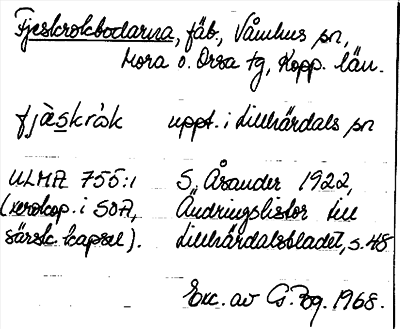 Fjeskrokbodarna, fäb., Våmhus sn,
Mora o. Orsa tg, Kopp. län.
fjæskròk uppt. i Lillhärdals sn
ULMA 755:1 S. Åsander 1922,
(xerokop. i SOA, Ändringslistor till
särsk. kapsel). Lillhärdalsbladet, s. 48
Exc. av G. Bg. 1968.